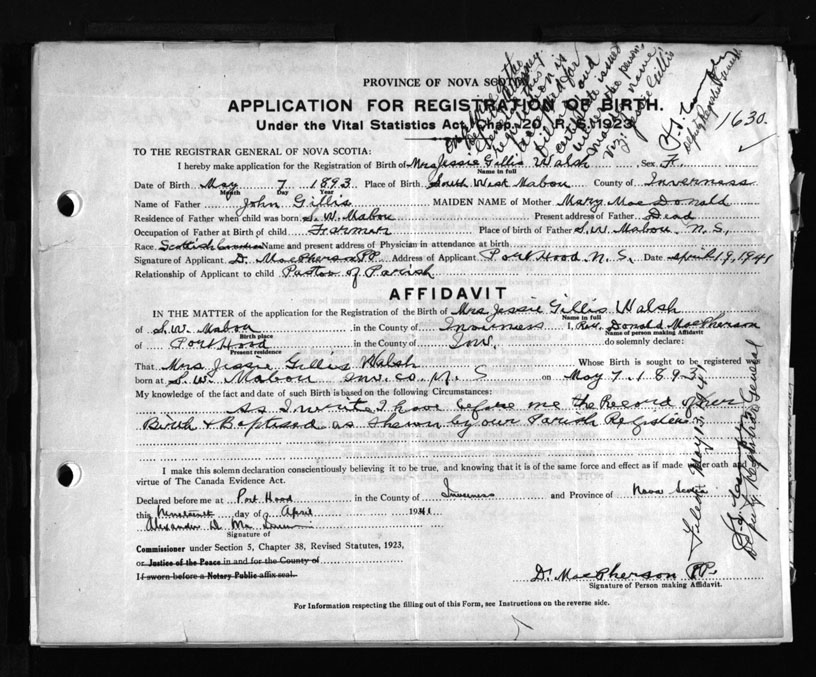 PROVINCE OF NOVA SCOTIA
APPLICATION FOR REGISTRATION OF BIRTH.
Under the Vital Statistics Act, Chap. 20 R. S. 1923
1630.
TO THE REGISTRAR GENERAL OF NOVA SCOTIA:
I hereby make application for the Registration of Birth of Mrs Jessie Gillis Walsh Sex F.
Name in full
Date of Birth May 7 1893 Place of Birth South West Mabou County of Inverness
Month Day Year
Name of Father John Gillis MAIDEN NAME of Mother Mary MacDonald
Residence of Father when child was born S. W. Mabou Present address of Father Dead
Occupation of Father at Birth of child Farmer Place of birth of Father S. W. Mabou N. S.,
Race Scottish Name and present address of Physician in attendance at birth
Signature of Applicant D. MacPherson PP. Address of Applicant Port Hood N. S. Date April 19, 1941
Relationship of Applicant to child Pastor of Parish
AFFIDAVIT
IN THE MATTER of the application for the Registration of the Birth of Mrs Jessie Gillis Walsh
Name in full
of S. W. Mabou in the County of Inverness I, Rev. Donald MacPherson
Birth place Name of person making Affidavit
of Port Hood in the County of Inv. do solemnly declare:
Present residence
That Mrs Jessie Gillis Walsh Whose Birth is sought to be registered was
born at S. W. Mabou Inv. Co. N. S on May 7. 1893
My knowledge of the fact and date of such Birth is based on the following Circumstances:
As I write I have before me the Record of her
Birth & Baptised as shown by our Parish Register
I make this solemn declaration conscientiously believing it to be true, and knowing that it is of the same force and effect as if made under oath and
virtue of The Canada Evidence Act.
Declared before me at Port Hood in the County of Inverness and Province of Nova Scotia
this Nineteenth day of April 1941
Alexander D.
Signature of
Commissioner under Section 5, Chapter 38, Revised Statutes, 1923,
or Justice of the Peace in and for the County of
If sworn before a Notary Public affix seal.
D. MacPherson PP.
Signature of Person making Affidavit.
For Information respecting the filling out of this Form, see Instructions on the reverse side.
Filed May 13, 41
Deputy Registrar General